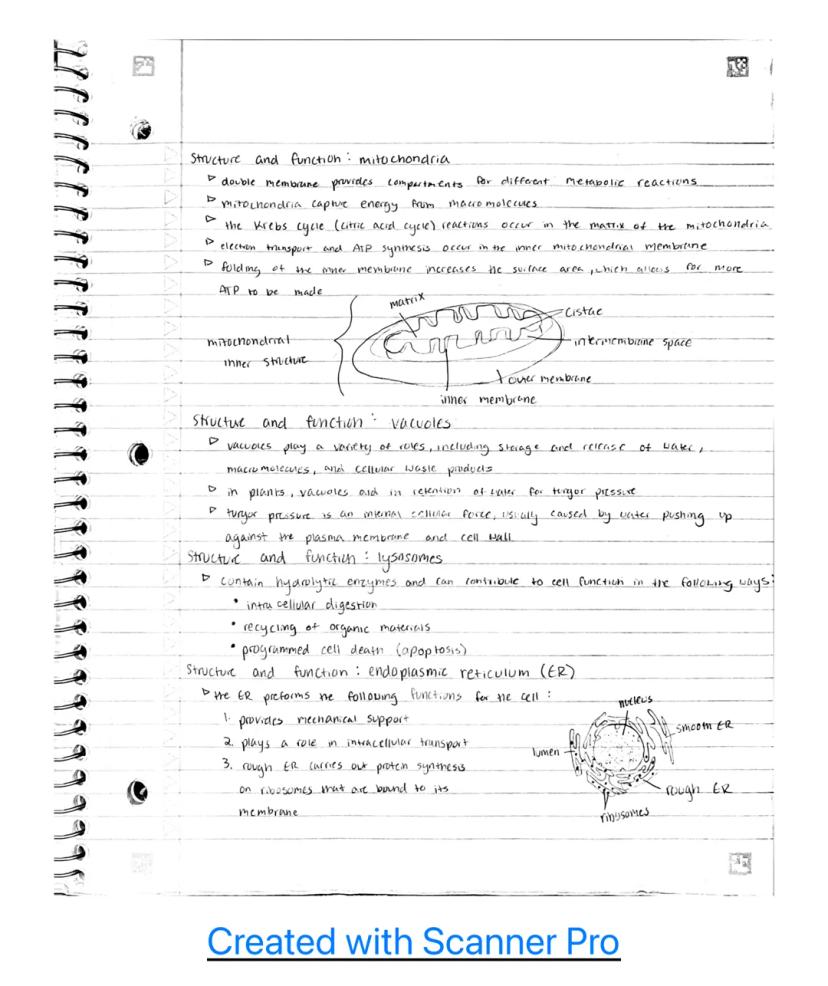 Structure and function: mitochondria
▷ double membrane provides compartments for different metabolic reactions
▷ mitochondria capture energy from macromolecules
▷ the Krebs cycle (citric acid cycle) reactions occur in the matrix of the mitochondria
▷ electron transport and ATP synthesis occur in the inner mitochondrial membrane
▷ folding of the inner membrane increases the surface area, which allows for more
ATP to be made
matrix
cistae
mitochondrial
inner structure
intermembrane space
outer membrane
inner membrane
Structure and function: vacuoles
▷ vacuoles play a variety of roles, including storage and release of water,
macromolecules, and cellular waste products
▷ in plants, vacuoles aid in retention of water for turgor pressure
▷ turgor pressure is an internal cellular force, usually caused by water pushing up
against the plasma membrane and cell wall
Structure and function: lysosomes
▷ contain hydrolytic enzymes and can contribute to cell function in the following ways:
• intracellular digestion
• recycling of organic materials
• programmed cell death (apoptosis)
Structure and function: endoplasmic reticulum (ER)
▷ the ER preforms the following functions for the cell:
1. provides mechanical support
2. plays a role in intracellular transport
3. rough ER carries out protein synthesis
on ribosomes that are bound to its
membrane
nucleus
smooth ER
lumen
rough ER
ribosomes
Created with Scanner Pro